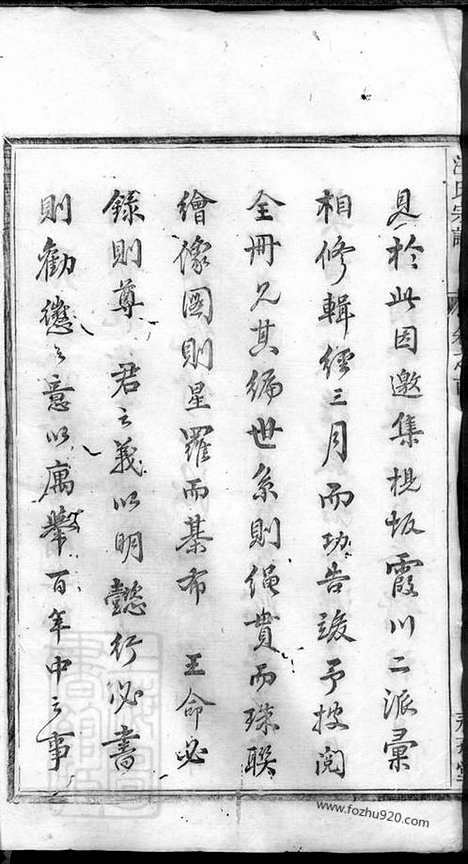 見於此因邀集梘坂霞川二派彙
相修輯經三月而功告竣予披閱
全冊見其編世系則繩貫而珠聯
繪像圖則星羅而棊布　王命必
錄則尊　君之義以明懿行必書
則勸懲之意以寓舉百年中之事
氏宗譜
www.fozhu920.com